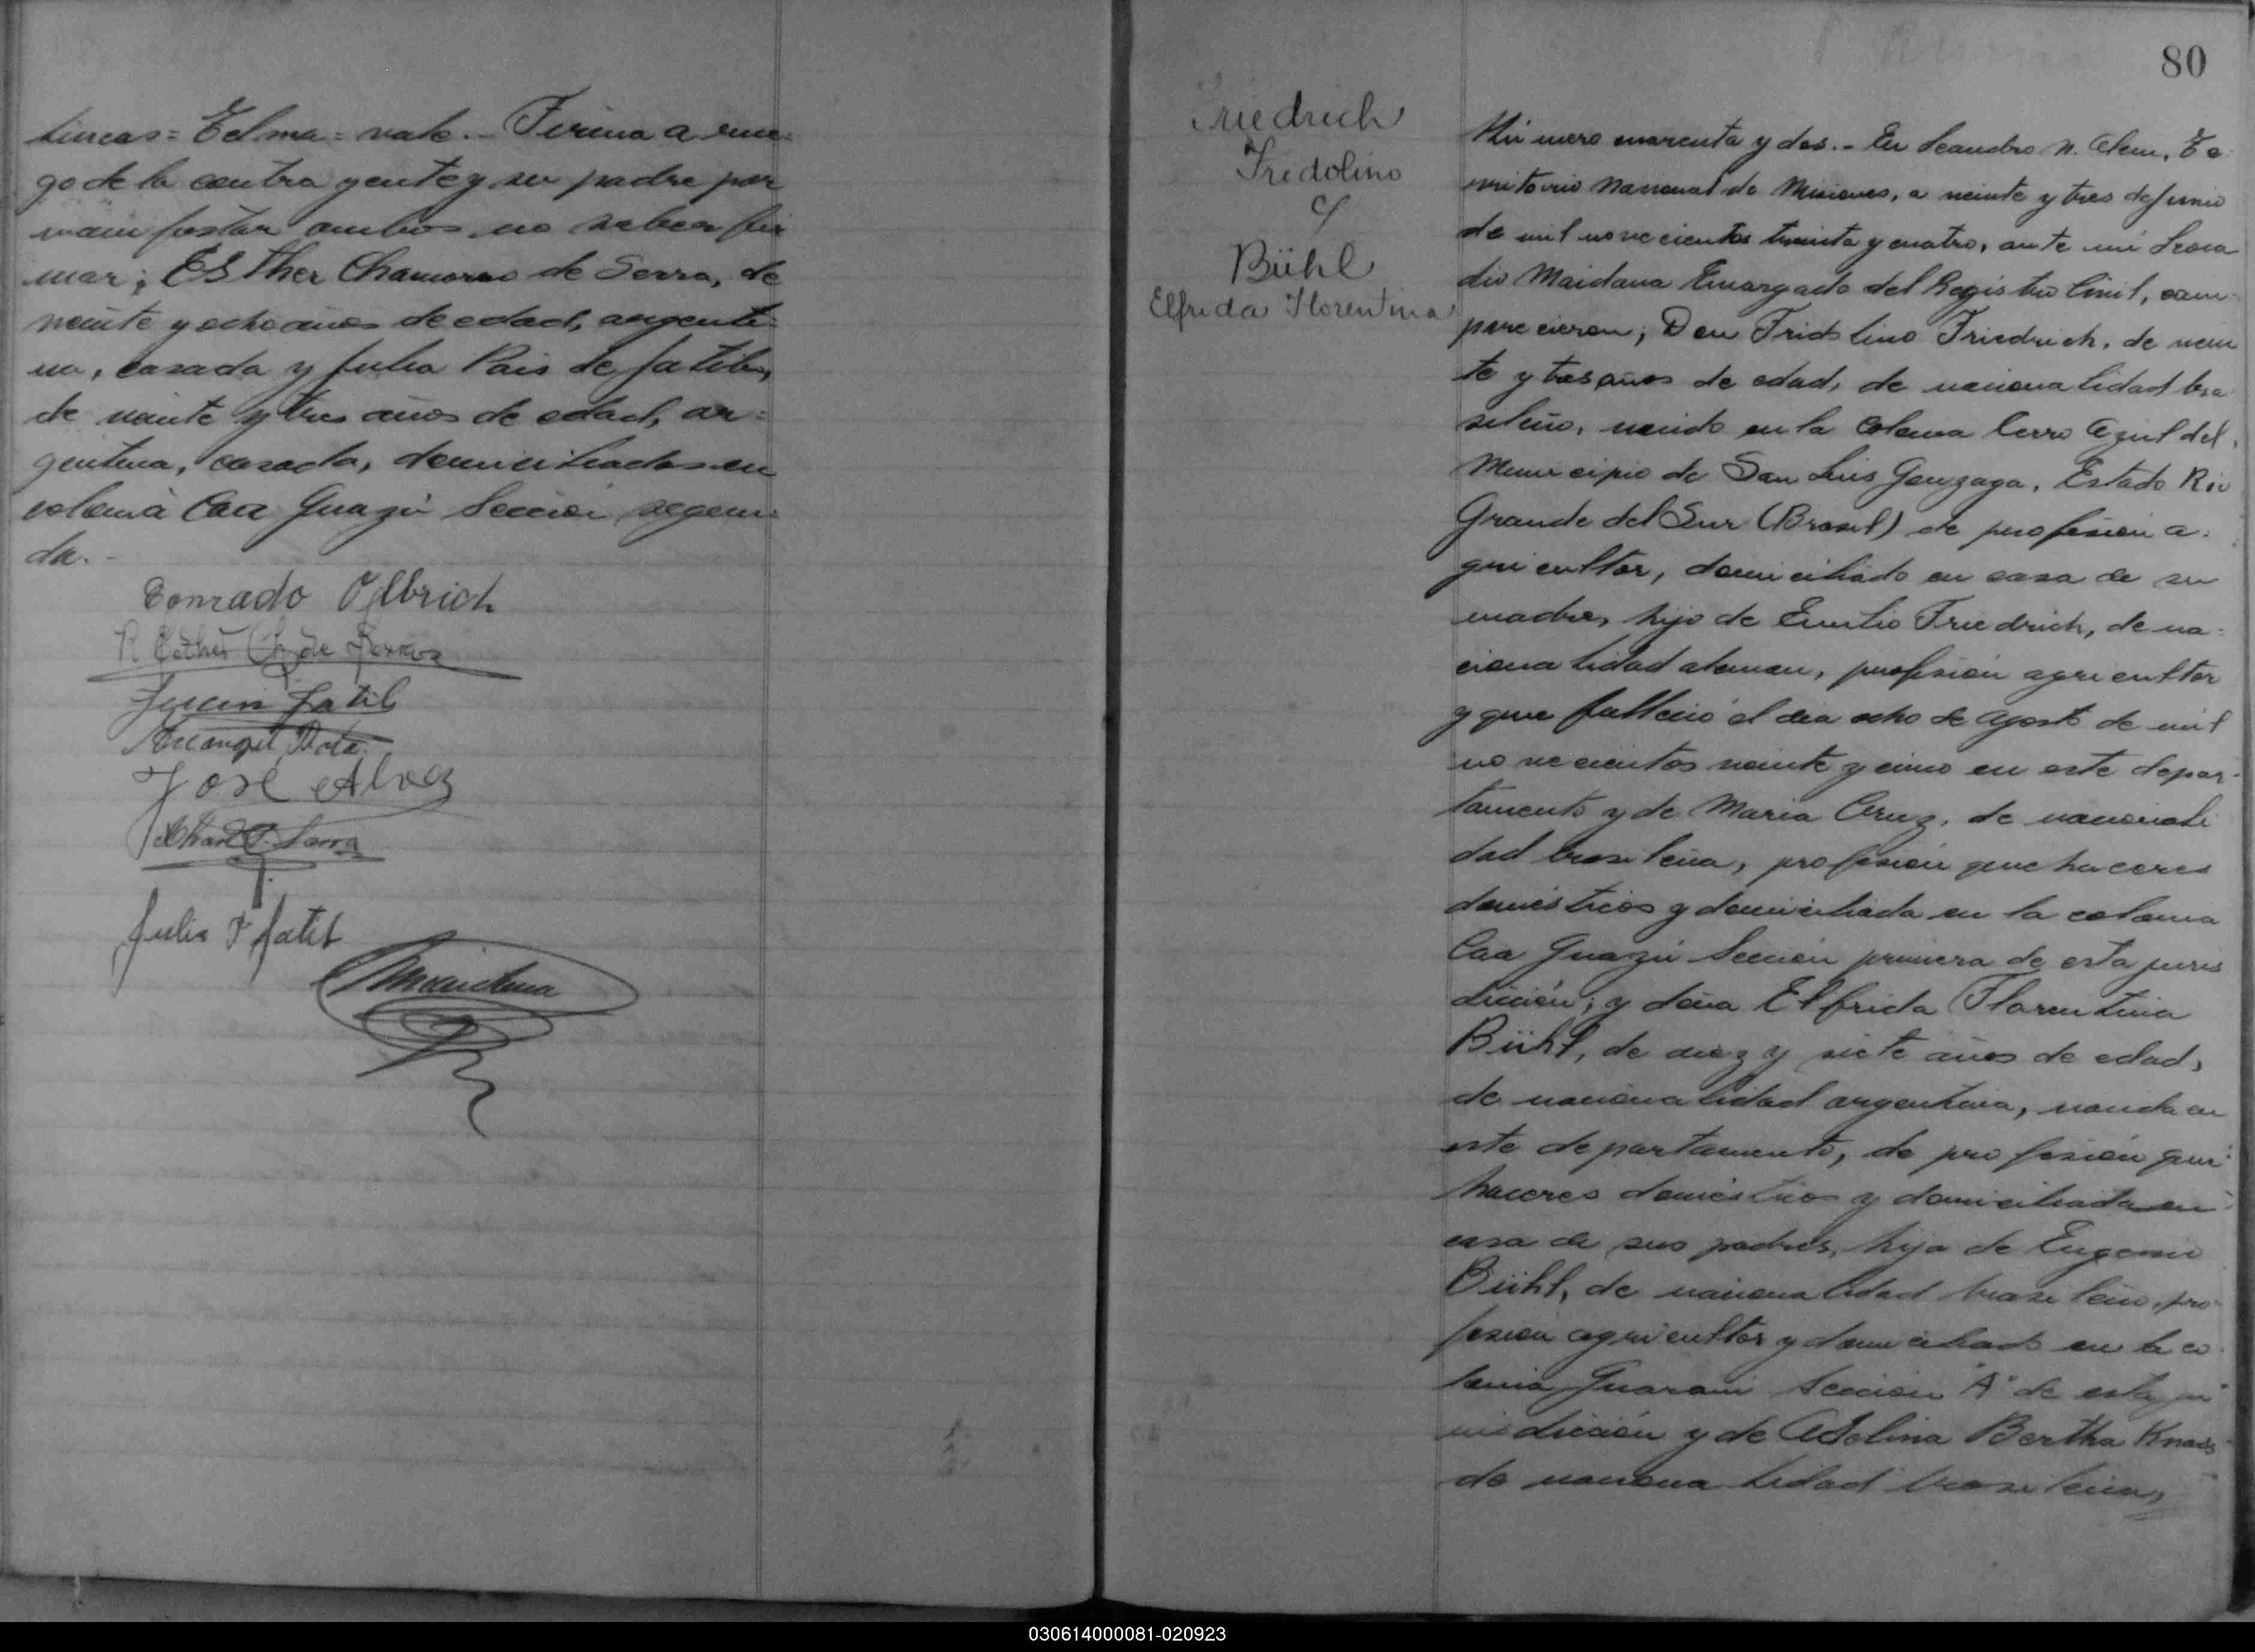 lineas = Telma = vale. - Firma a rue-
go de la contrayente y su padre por
manifestar ambos no saber fir
mar; Esther Chamorro de Serra, de
veinte y ocho años de edad, argenti-
na, casada y Julia Pais de Jatib,
de veinte y tres años de edad, ar=
gentina, casada, domiciliadas en
colonia Caa Guazú Sección segun-
da. -
Conrado Olbrich
R Esther Ch de Serra
Jatib
Arcangel
José Alvez
Serra
Julia P Jatib
Maidana
80
Friedrich
Fridolino
c/
Bühl
Elfrida Florentina
Número cuarenta y dos. - En Leandro N. Alem, Te
rritorio Nacional de Misiones, a veinte y tres de junio
de mil novecientos treinta y cuatro, ante mi Leoca
dio Maidana Encargado del Registro Civil, com-
parecieron; Don Fridolino Friedrich, de vein
te y tres años de edad, de nacionalidad bra
sileño, nacido en la Colonia Cerro Azul del
Municipio de San Luis Gonzaga, Estado Rio
Grande del Sur (Brasil) de profesión a-
gricultor, domiciliado en casa de su
madre, hijo de Emilio Friedrich, de na-
cionalidad aleman, profesión agricultor
y que falleció el dia ocho de Agosto de mil
novecientos veinte y cinco en este depar-
tamento y de Maria Cruz, de nacionali
dad brasileña, profesión quehaceres
domésticos y domiciliada en la colonia
Caa Guazú Sección primera de esta juris
dicción; y doña Elfrida Florentina
Bühl, de diez y siete años de edad,
de nacionalidad argentina, nacida en
este departamento, de profesión que-
haceres domésticos y domiciliada en
casa de sus padres, hija de Eugenio
Bühl, de nacionalidad brasileño, pro-
fesión agricultor y domiciliado en la co
lonia Guarani Sección "A" de esta ju
risdicción y de Adolina Bertha
de nacionalidad brasileña,
030614000081-020923